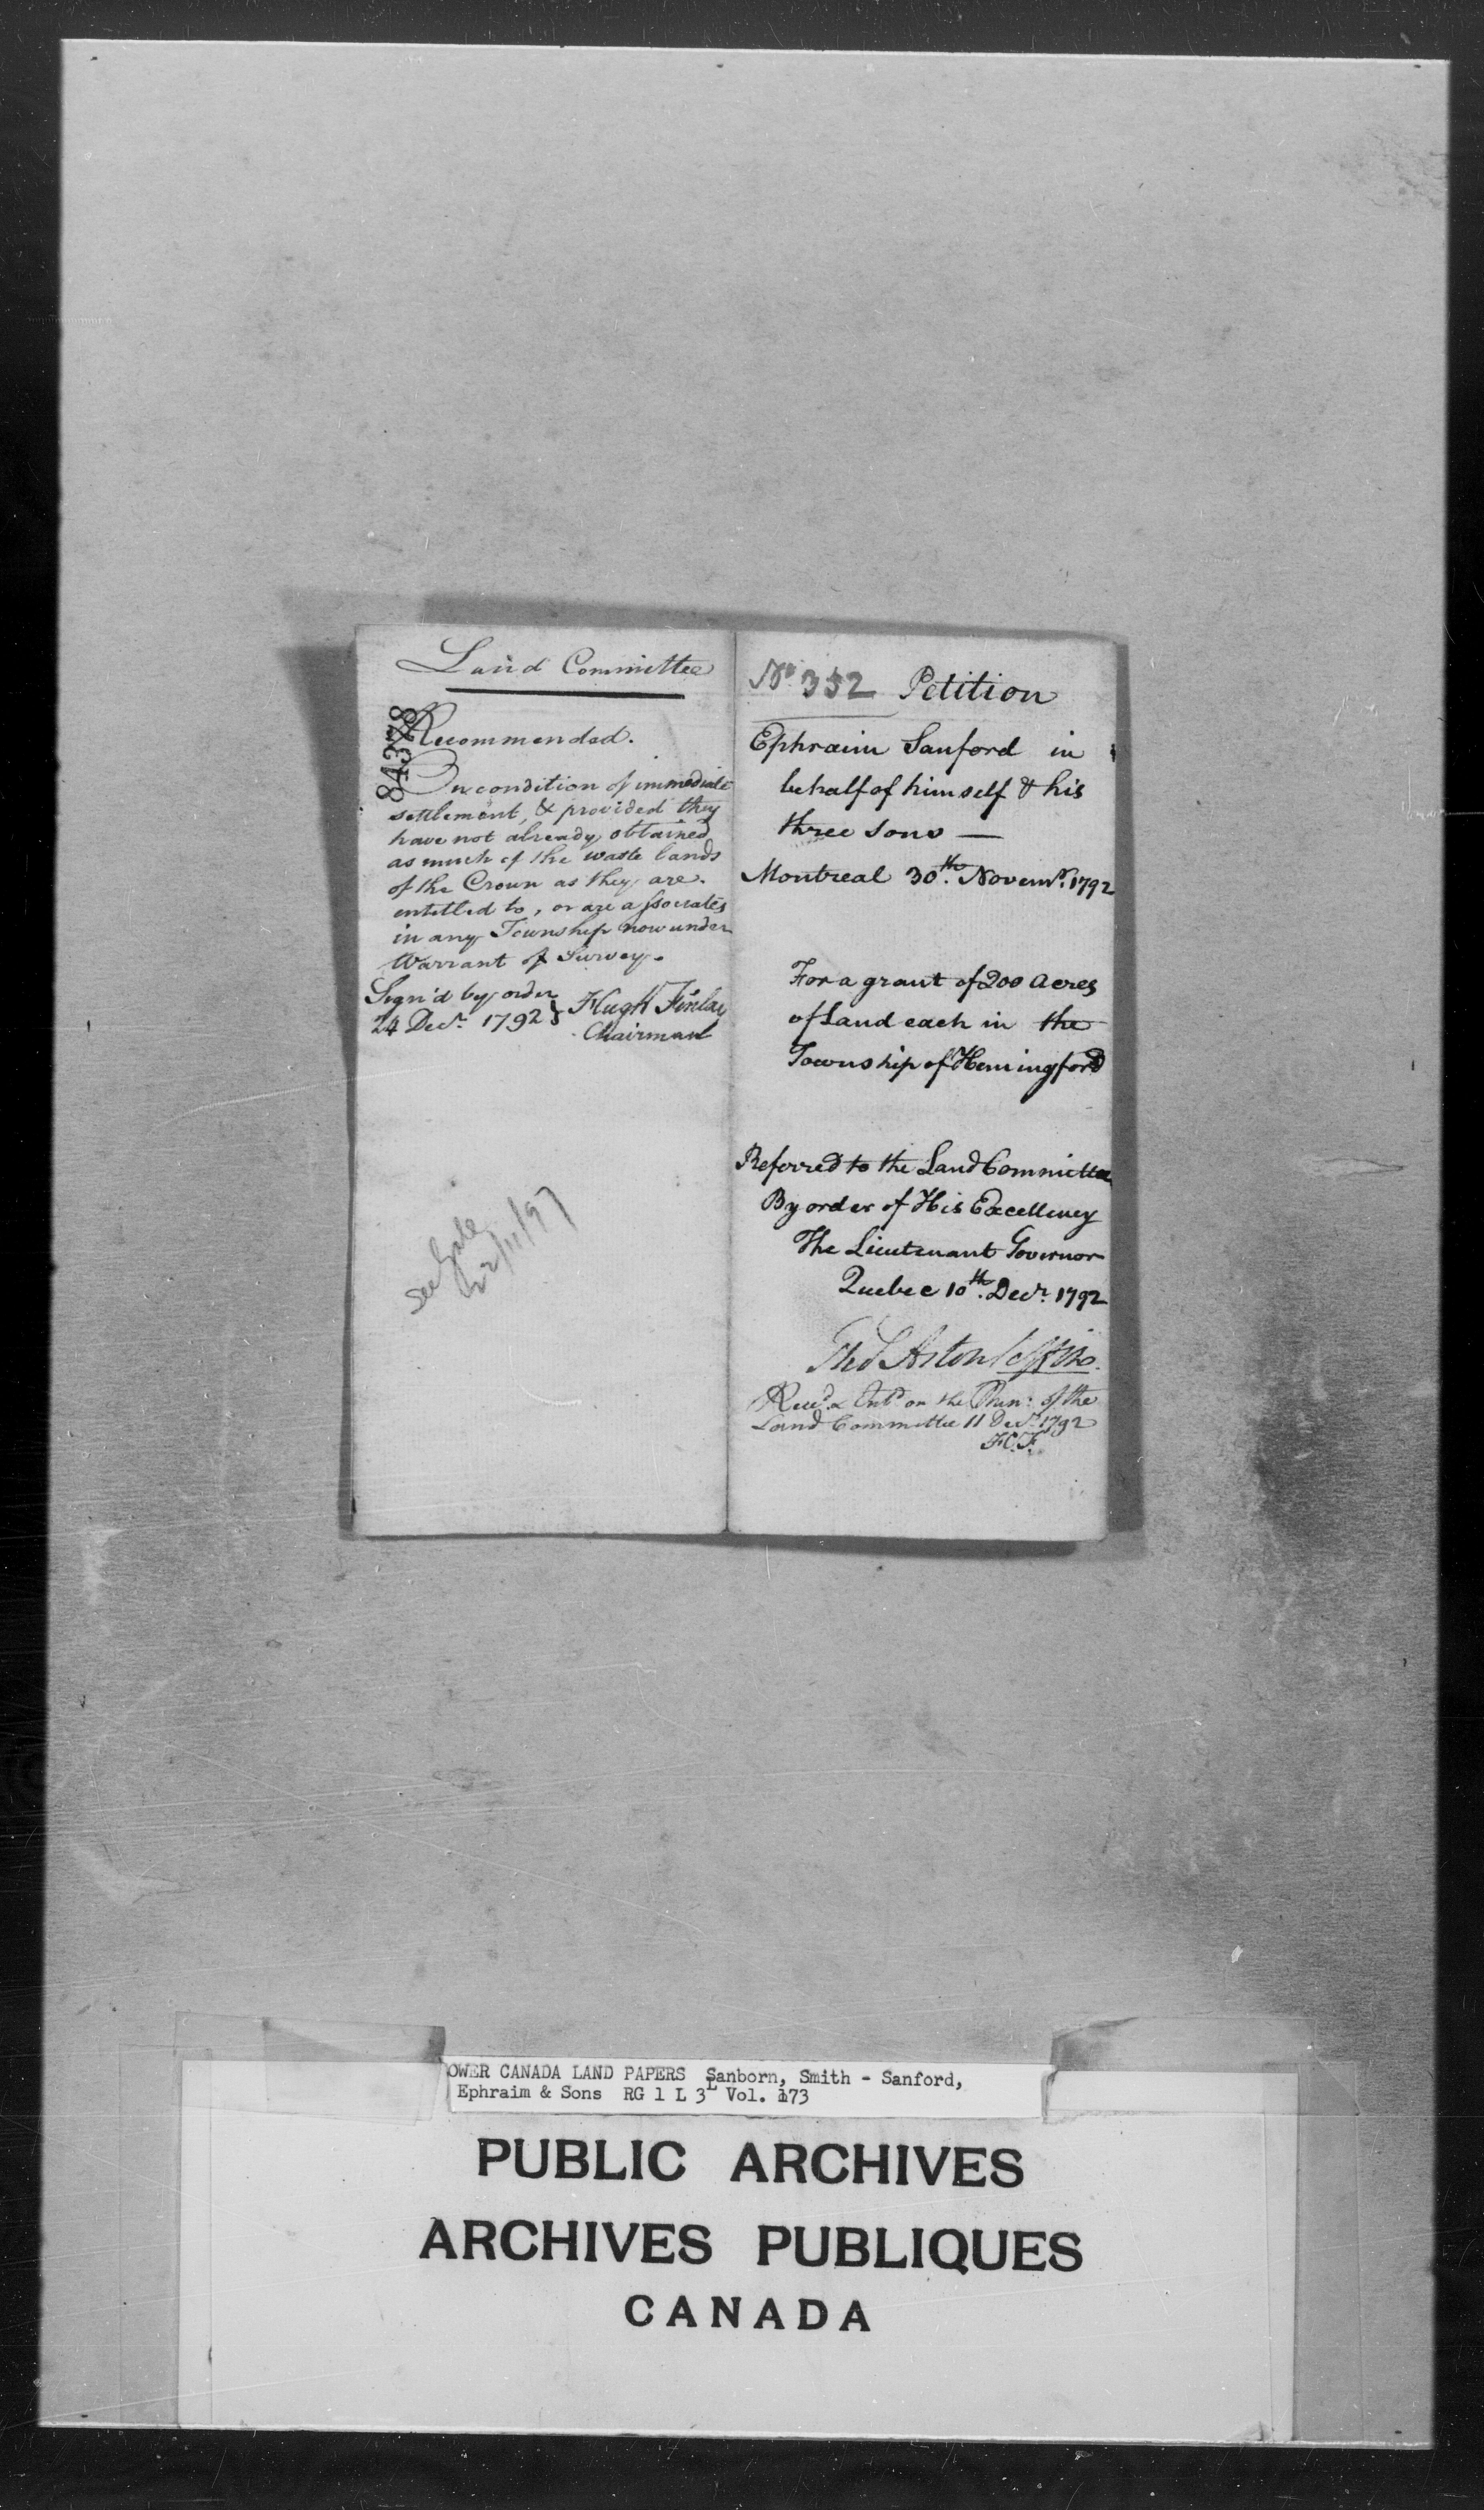 Land Committee
84378
Recommended.
On condition of immediate
settlement, & provided they
have not already obtained
as much of the waste lands
of the Crown as they are
entitled to, or are associates
in any Township now under
Warrant of Survey.
Sign'd by order
24 Decr. 1792 } Hugh Finlay
Chairman
See
22/11/97
No. 352 Petition
Ephraim Sanford in
behalf of himself & his
three sons —
Montreal 30th. Novemr. 1792
For a grant of 200 Acres
of Land each in the
Township of Hemingford
Referred to the Land Committee
By order of His Excellency
The Lieutenant Governor
Quebec 10th. Decr. 1792
Thos Aston Coffin.
Recd. & Entd. on the Min: of the
Land Committee 11 Decr. 1792
OWER CANADA LAND PAPERS Sanborn, Smith - Sanford,
Ephraim & Sons RG 1 L 3L Vol. 173
PUBLIC ARCHIVES
ARCHIVES PUBLIQUES
CANADA